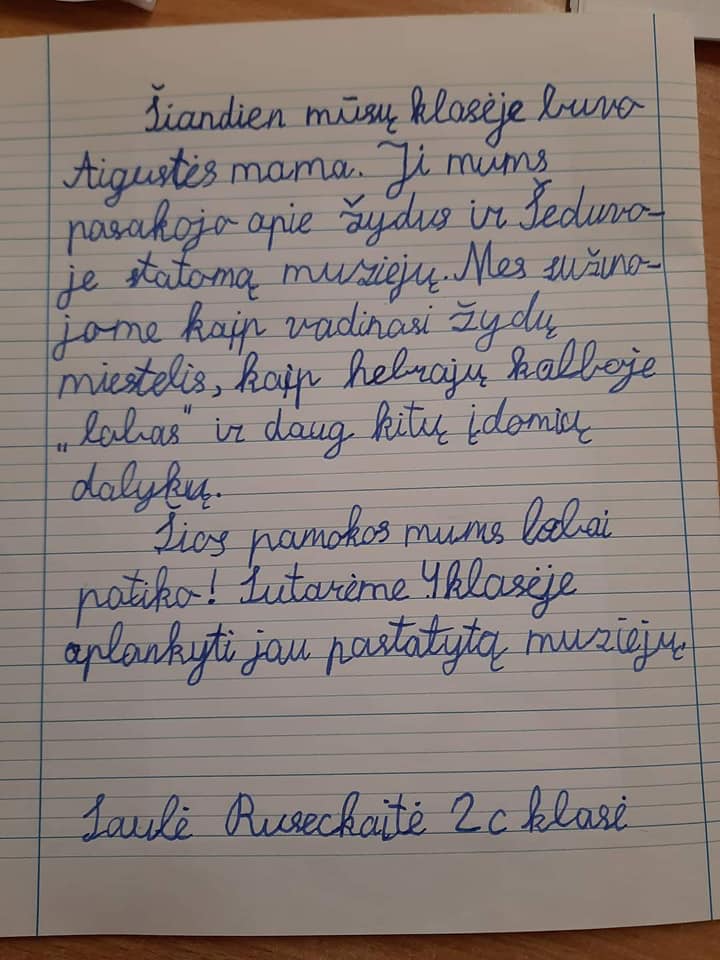 Šiandien mūsų klasėje buvo
Aigustės mama. Ji mums
pasakojo apie žydus ir Šeduvo-
je statomą muziejų. Mes sužino-
jome kaip vadinasi žydų
miestelis, kaip hebrajų kalboje
„labas" ir daug kitų įdomių
dalykų.
Šios pamokos mums labai
patiko! Sutarėme 4 klasėje
aplankyti jau pastatytą muziejų.
Saulė Ruseckaitė 2c klasė